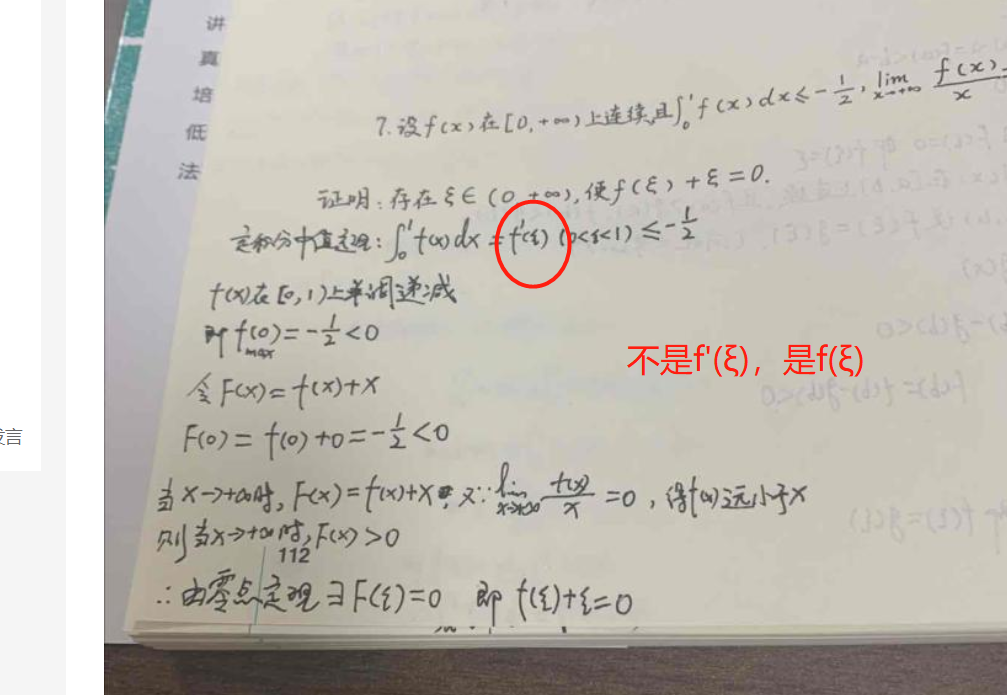 讲
真
培
低
法
发言
7.设f(x)在[0,+∞)上连续,且∫₀¹f(x)dx≤-1/2, lim x→+∞ f(x)/x
证明:存在ξ∈(0,+∞),使f(ξ)+ξ=0.
定积分中值定理:∫₀¹f(x)dx=f'(ξ) (0<ξ<1)≤-1/2
f(x)在[0,1)上单调递减
即f(0)max=-1/2<0
不是f'(ξ),是f(ξ)
令F(x)=f(x)+x
F(0)=f(0)+0=-1/2<0
当x→+∞时,F(x)=f(x)+x,又∵lim x→+∞ f(x)/x=0,得f(x)远小于x
则当x→+∞时,F(x)>0
112
∴由零点定理∃F(ξ)=0 即f(ξ)+ξ=0